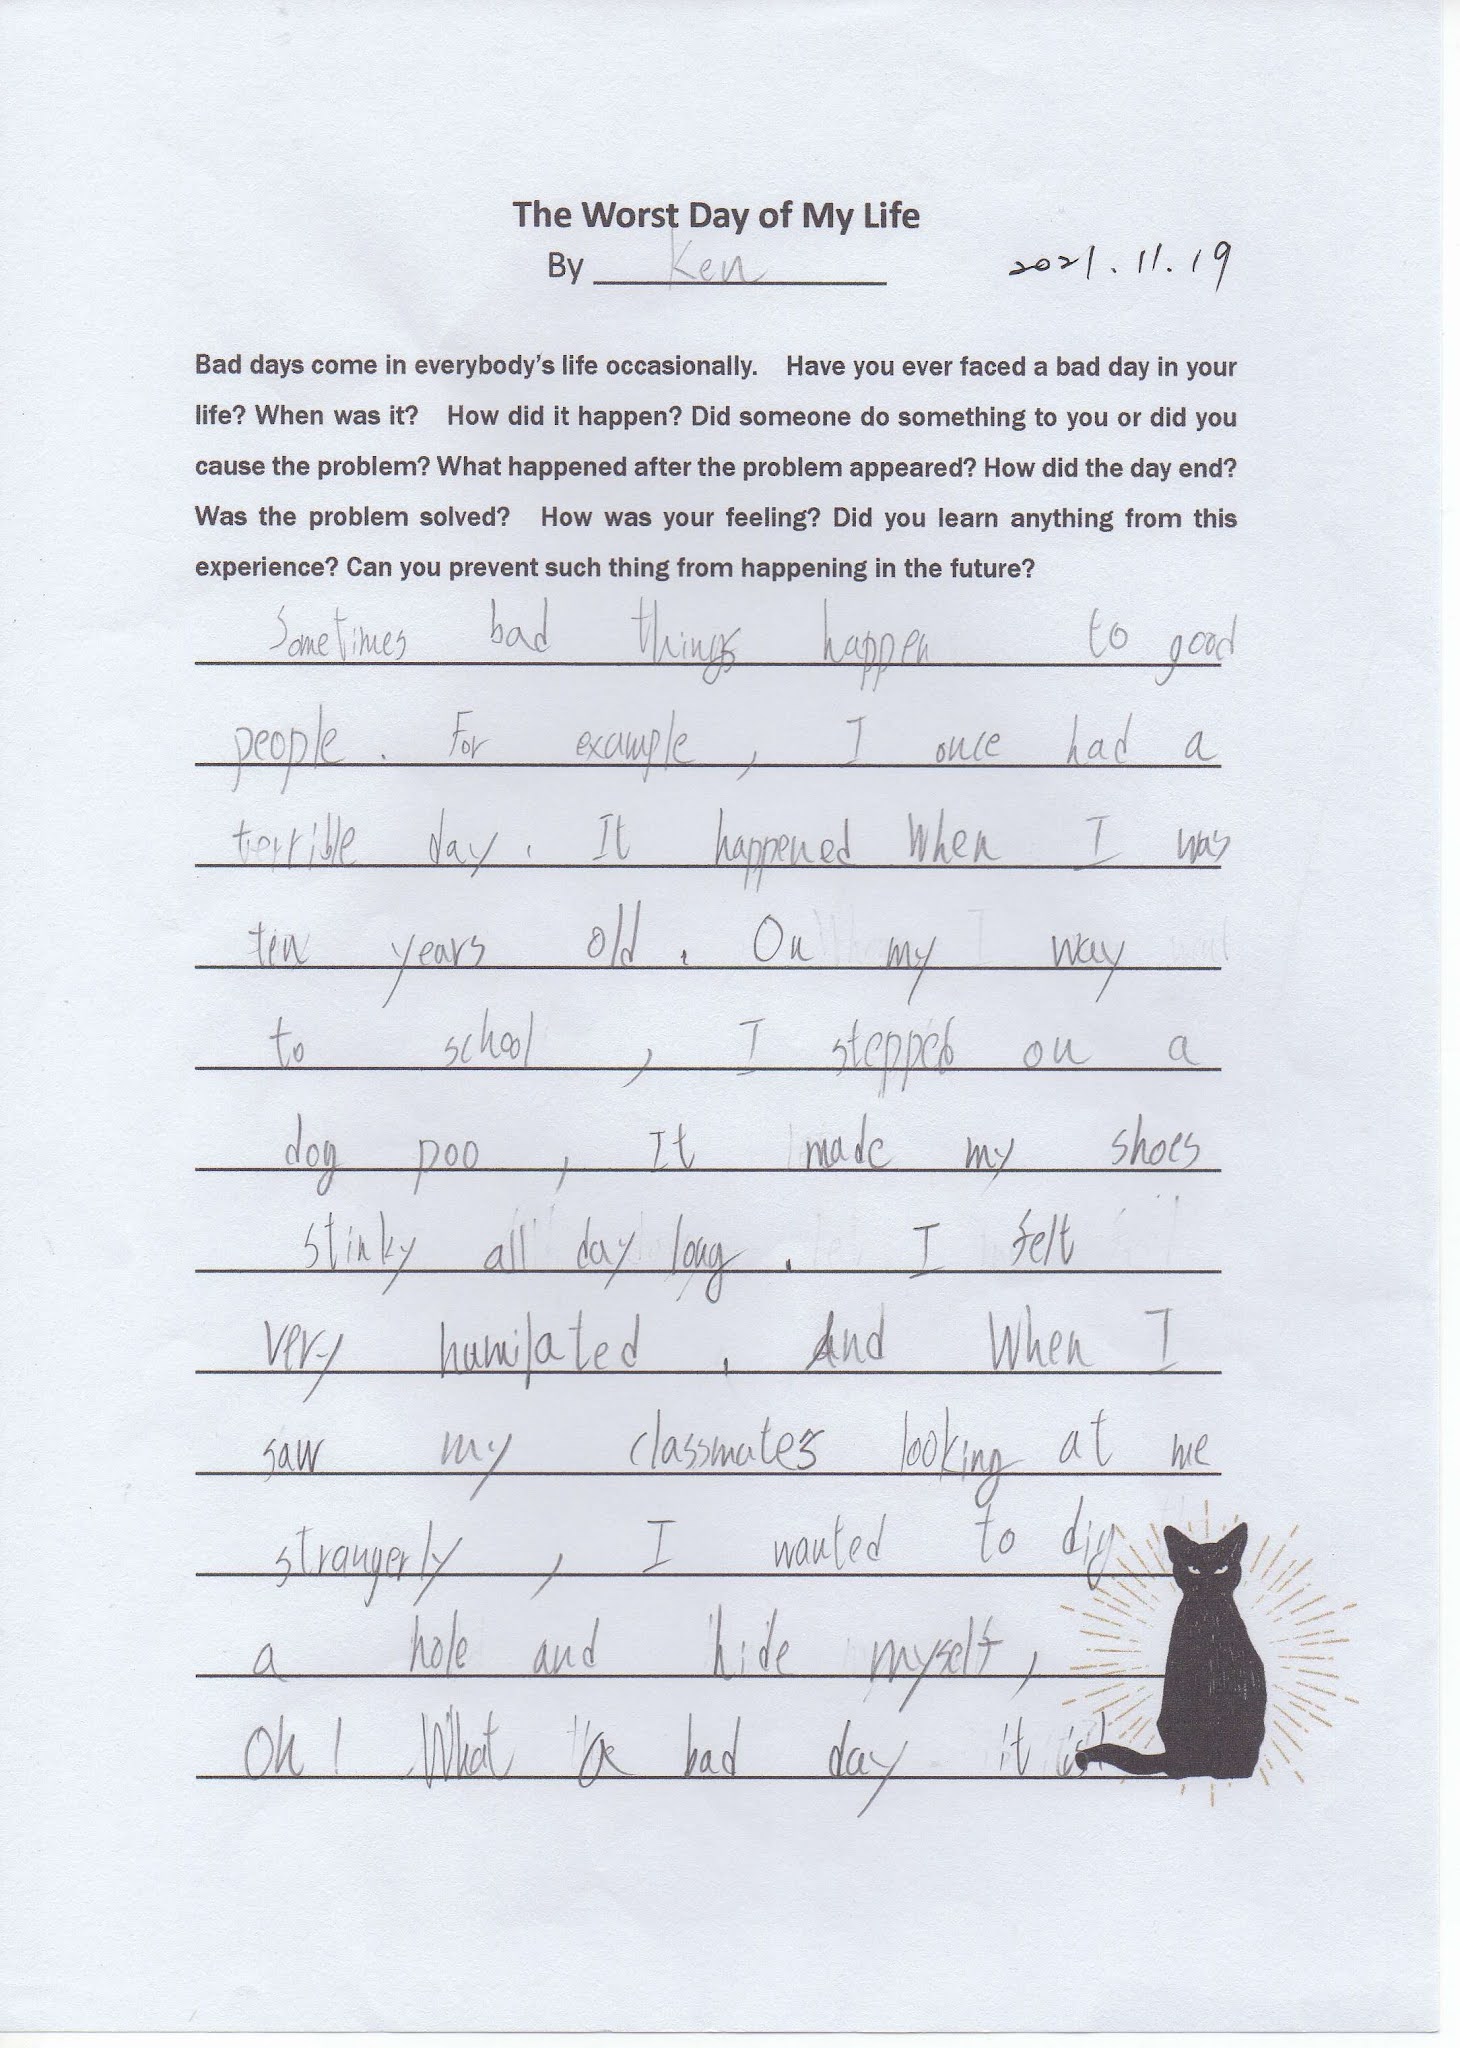 The Worst Day of My Life
By Ken 2021.11.19
Bad days come in everybody's life occasionally. Have you ever faced a bad day in your
life? When was it? How did it happen? Did someone do something to you or did you
cause the problem? What happened after the problem appeared? How did the day end?
Was the problem solved? How was your feeling? Did you learn anything from this
experience? Can you prevent such thing from happening in the future?
Sometimes bad things happen to good
people. For example, I once had a
terrible day. It happened When I was
ten years old. On my way
to school, I stepped on a
dog poo, It made my shoes
stinky all day long. I felt
very humilated. And When I
saw my classmates looking at me
strangerly, I wanted to dig
a hole and hide myself,
Oh! What a bad day it is!